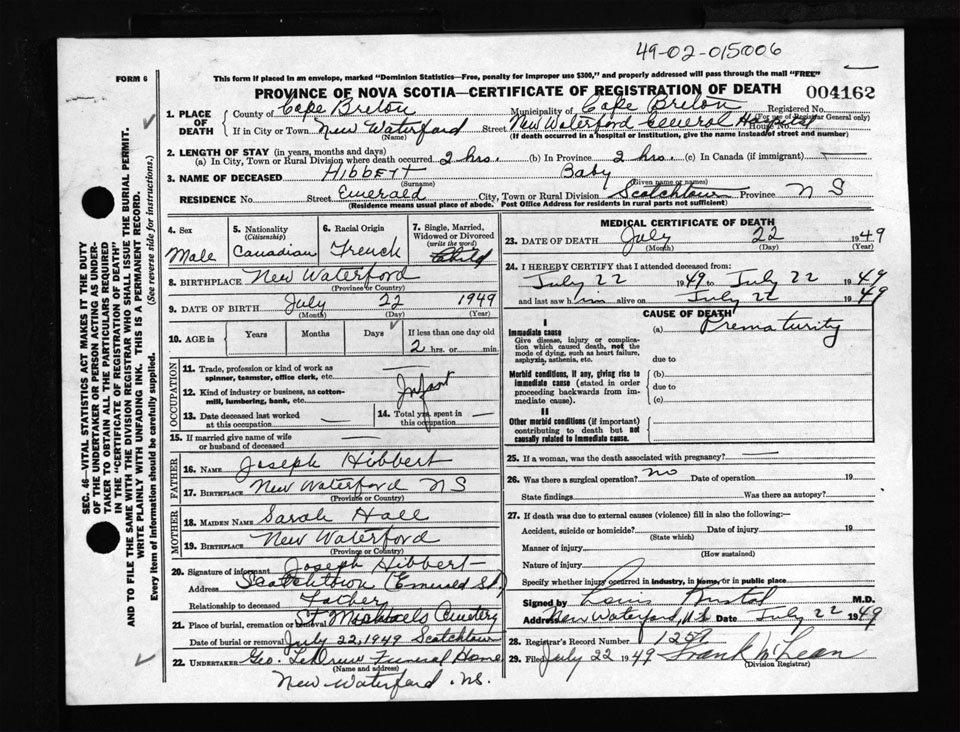 49-02-015006
FORM 6
This form if placed in an envelope, marked "Dominion Statistics—Free, penalty for improper use $300," and properly addressed will pass through the mail "FREE"
PROVINCE OF NOVA SCOTIA—CERTIFICATE OF REGISTRATION OF DEATH 004162
1. PLACE OF DEATH County of Cape Breton Municipality of Cape Breton Registered No. (For use of Registrar General only)
If in City or Town New Waterford (Name) Street New Waterford General Hospital House No.
(If death occurred in a hospital or institution, give the name instead of street and number)
2. LENGTH OF STAY (in years, months and days)
(a) In City, Town or Rural Division where death occurred 2 hrs. (b) In Province 2 hrs. (c) In Canada (if immigrant) —
3. NAME OF DECEASED HIBBETT (Surname) Baby (Given name or names)
RESIDENCE No. Street Emerald City, Town or Rural Division Scotchtown Province N S
(Residence means usual place of abode. Post Office Address for residents in rural parts not sufficient)
4. Sex Male
5. Nationality (Citizenship) Canadian
6. Racial Origin French
7. Single, Married, Widowed or Divorced (write the word) Child
8. BIRTHPLACE New Waterford (Province or Country)
9. DATE OF BIRTH July (Month) 22 (Day) 1949 (Year)
10. AGE in Years Months Days If less than one day old 2 hrs. or min.
OCCUPATION
11. Trade, profession or kind of work as spinner, teamster, office clerk, etc. —
12. Kind of industry or business, as cotton-mill, lumbering, bank, etc. Infant
13. Date deceased last worked at this occupation —
14. Total yrs. spent in this occupation —
15. If married give name of wife or husband of deceased —
FATHER
16. NAME Joseph Hibbert
17. BIRTHPLACE New Waterford NS (Province or Country)
MOTHER
18. MAIDEN NAME Sarah Hall
19. BIRTHPLACE New Waterford (Province or Country)
20. Signature of informant Joseph Hibbert
Address Scotchtown (Emerald St.)
Relationship to deceased Father
21. Place of burial, cremation or removal St Michaels Cemetery
Date of burial or removal July 22, 1949 Scotchtown
22. UNDERTAKER Geo. LeDrew Funeral Home (Name and address)
New Waterford .NS.
MEDICAL CERTIFICATE OF DEATH
23. DATE OF DEATH July (Month) 22 (Day) 1949 (Year)
24. I HEREBY CERTIFY that I attended deceased from:
July 22 1949 to July 22 1949
and last saw him alive on July 22 1949
CAUSE OF DEATH
I
Immediate cause (a) Prematurity
Give disease, injury or complication which caused death, not the mode of dying, such as heart failure, asphyxia, asthenia, etc. due to
Morbid conditions, if any, giving rise to immediate cause (stated in order proceeding backwards from immediate cause). (b) due to (c)
II
Other morbid conditions (if important) contributing to death but not causally related to immediate cause.
25. If a woman, was the death associated with pregnancy? —
26. Was there a surgical operation? no Date of operation 19
State findings Was there an autopsy?
27. If death was due to external causes (violence) fill in also the following:—
Accident, suicide or homicide? (State which) Date of injury 19
Manner of injury (How sustained)
Nature of injury
Specify whether injury occurred in industry, in home, or in public place
Signed by Louis M.D.
Address New Waterford, N.S. Date July 22 1949
28. Registrar's Record Number 1259
29. Filed July 22 1949 Frank McLean (Division Registrar)
SEC. 46—VITAL STATISTICS ACT MAKES IT THE DUTY
OF THE UNDERTAKER OR PERSON ACTING AS UNDER-
TAKER TO OBTAIN ALL THE PARTICULARS REQUIRED
IN THE "CERTIFICATE OF REGISTRATION OF DEATH"
AND TO FILE THE SAME WITH THE DIVISION REGISTRAR WHO SHALL ISSUE THE BURIAL PERMIT.
WRITE PLAINLY WITH UNFADING INK. THIS IS A PERMANENT RECORD.
Every item of information should be carefully supplied. (See reverse side for instructions.)